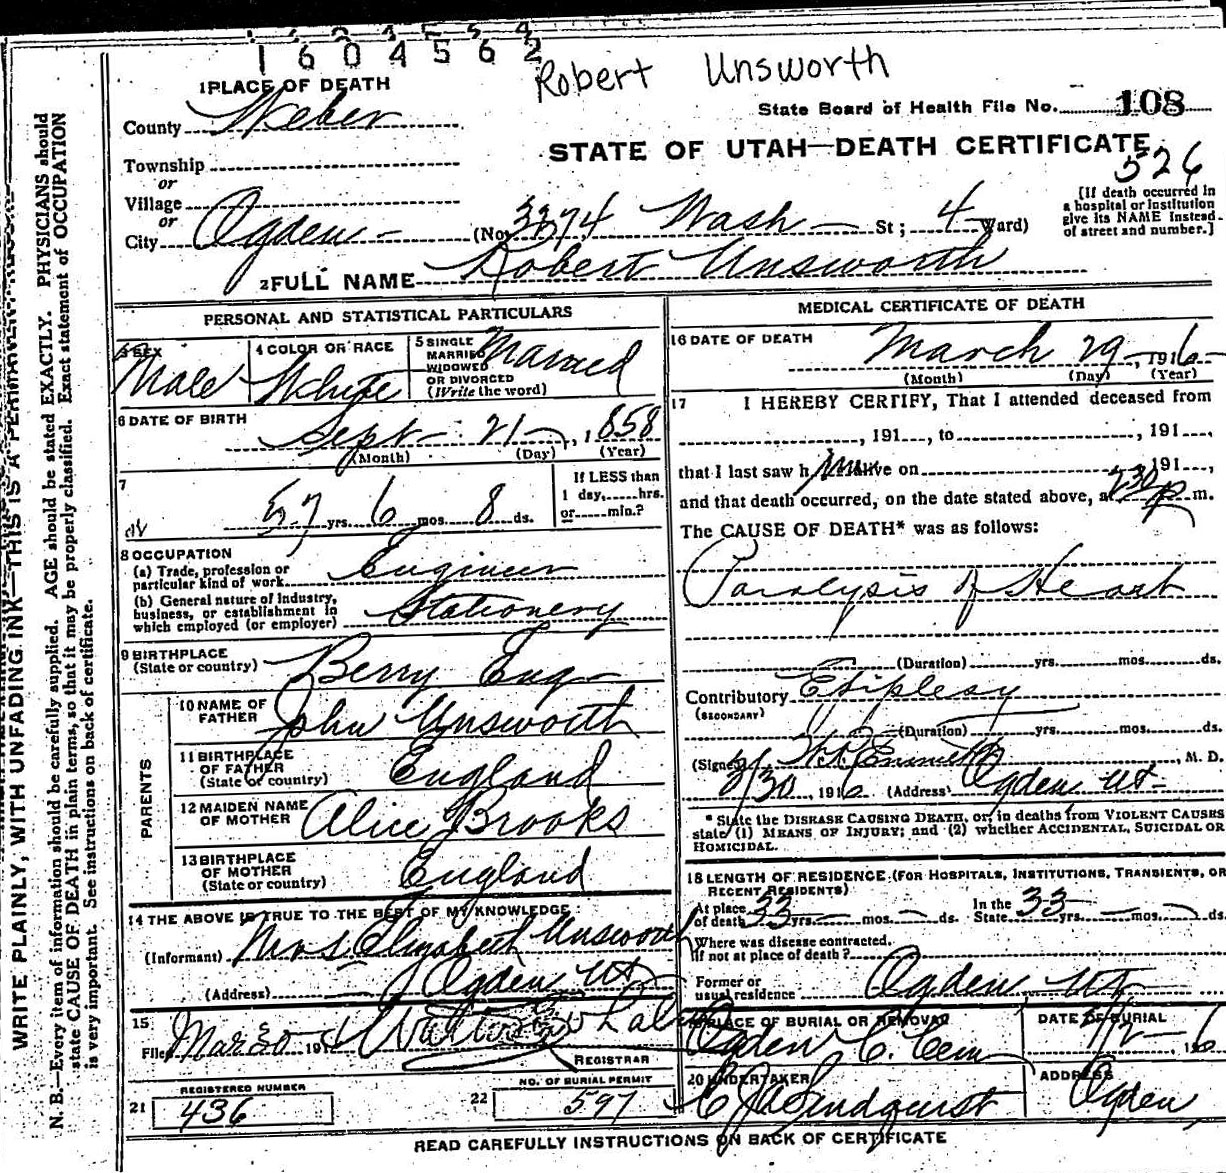 1604562
Robert Unsworth
1 PLACE OF DEATH
State Board of Health File No. 108
County Weber
STATE OF UTAH—DEATH CERTIFICATE
526
Township
or
Village
or
City Ogden (No. 3374 Wash St; 4 Ward)
[If death occurred in a hospital or institution give its NAME instead of street and number.]
2 FULL NAME Robert Unsworth
PERSONAL AND STATISTICAL PARTICULARS
3 SEX Male
4 COLOR OR RACE White
5 SINGLE MARRIED WIDOWED OR DIVORCED (Write the word) Married
6 DATE OF BIRTH Sept 21, 1858
(Month) (Day) (Year)
7
57 yrs. 6 mos. 8 ds.
If LESS than 1 day, hrs. or min.?
8 OCCUPATION
(a) Trade, profession or particular kind of work Engineer
(b) General nature of industry, business, or establishment in which employed (or employer) Stationery
9 BIRTHPLACE (State or country) Berry Eng
PARENTS
10 NAME OF FATHER John Unsworth
11 BIRTHPLACE OF FATHER (State or country) England
12 MAIDEN NAME OF MOTHER Alice Brooks
13 BIRTHPLACE OF MOTHER (State or country) England
14 THE ABOVE IS TRUE TO THE BEST OF MY KNOWLEDGE
(Informant) Mrs Elizabeth Unsworth
(Address) Ogden Ut
15
Filed Mar 30 191
REGISTRAR
REGISTERED NUMBER
21 436
NO. OF BURIAL PERMIT
22 597
MEDICAL CERTIFICATE OF DEATH
16 DATE OF DEATH March 29, 1916
(Month) (Day) (Year)
17 I HEREBY CERTIFY, That I attended deceased from
, 191 , to , 191 ,
that I last saw h im alive on , 191 ,
and that death occurred, on the date stated above, at 230 p m.
The CAUSE OF DEATH* was as follows:
Paralysis of Heart
(Duration) yrs. mos. ds.
Contributory Epiplesy
(SECONDARY)
(Duration) yrs. mos. ds.
(Signed) , M. D.
3/30, 1916 (Address) Ogden Ut
* State the DISEASE CAUSING DEATH, or, in deaths from VIOLENT CAUSES
state (1) MEANS OF INJURY; and (2) whether ACCIDENTAL, SUICIDAL OR
HOMICIDAL.
18 LENGTH OF RESIDENCE (FOR HOSPITALS, INSTITUTIONS, TRANSIENTS, OR
RECENT RESIDENTS)
At place of death 33 yrs. mos. ds. In the State 33 yrs. mos. ds.
Where was disease contracted, if not at place of death?
Former or usual residence Ogden Ut
19 PLACE OF BURIAL OR REMOVAL Ogden C. Cem
DATE OF BURIAL 4/2, 1916
20 UNDERTAKER C J A Lindquist
ADDRESS Ogden
READ CAREFULLY INSTRUCTIONS ON BACK OF CERTIFICATE
WRITE PLAINLY, WITH UNFADING INK—THIS IS A PERMANENT RECORD
N. B.—Every item of information should be carefully supplied. AGE should be stated EXACTLY. PHYSICIANS should
state CAUSE OF DEATH in plain terms, so that it may be properly classified. Exact statement of OCCUPATION
is very important. See instructions on back of certificate.